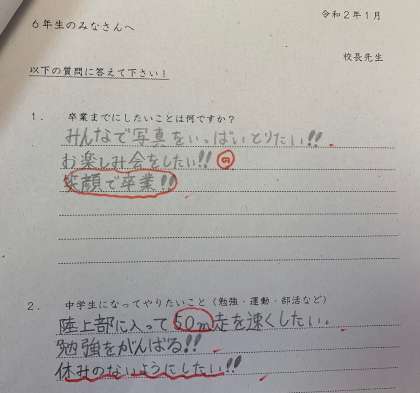 令和2年1月
6年生のみなさんへ
校長先生
以下の質問に答えて下さい！
1． 卒業までにしたいことは何ですか？
みんなで写真をいっぱいとりたい!!
お楽しみ会をしたい!!
笑顔で卒業!!
2． 中学生になってやりたいこと（勉強・運動・部活など）
陸上部に入って50m走を速くしたい。
勉強をがんばる!!
休みのないようにしたい!!